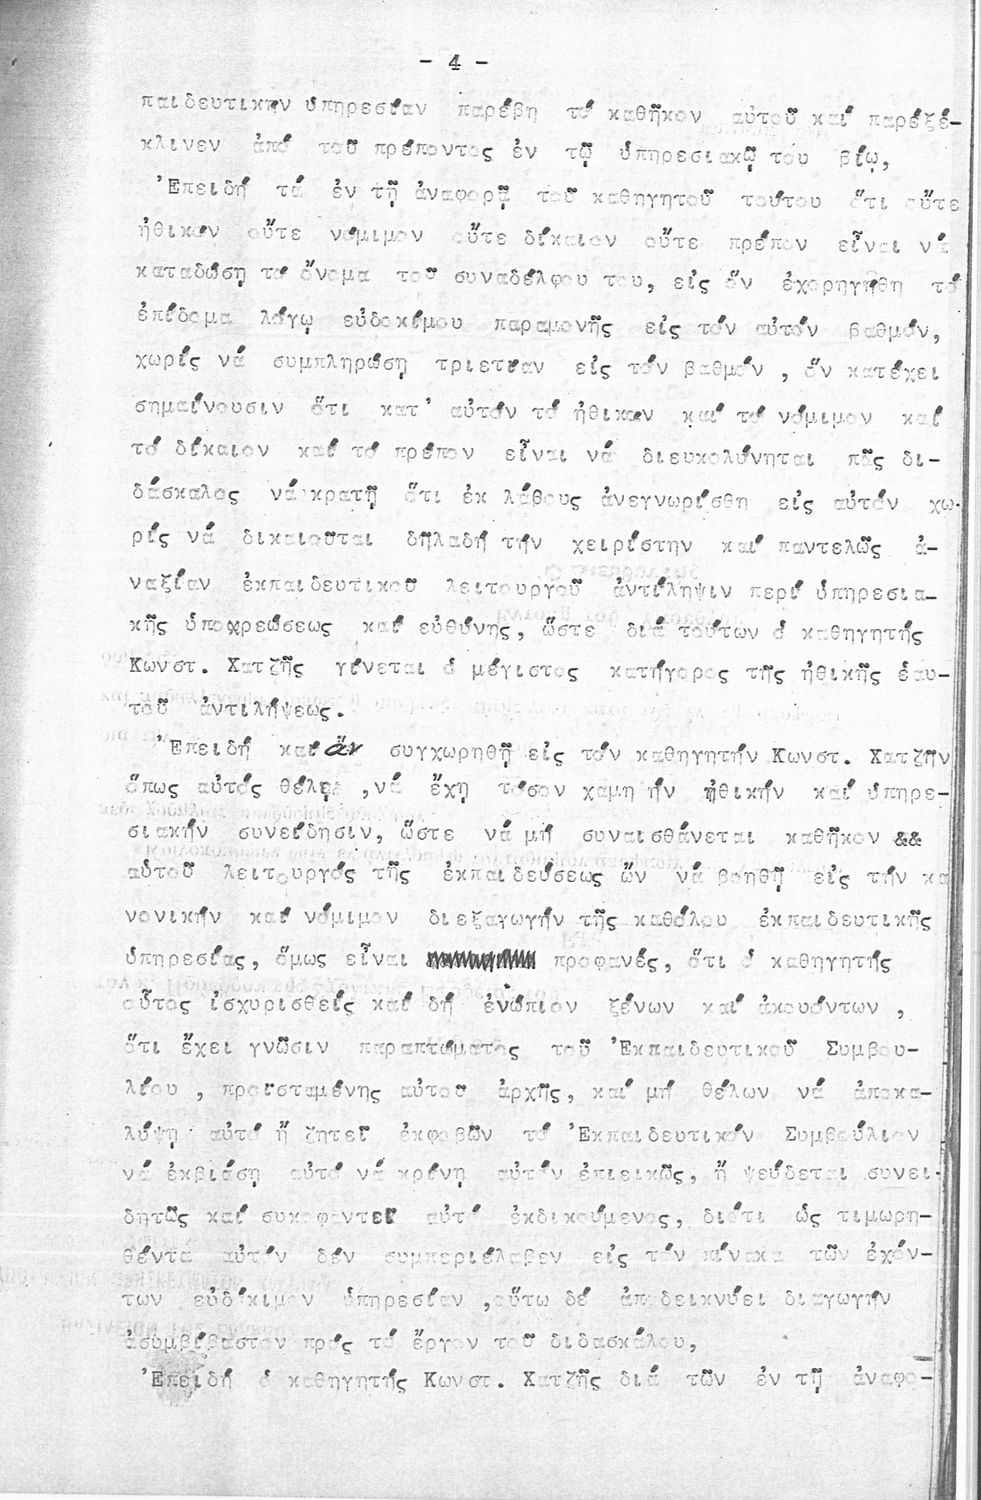 - 4 -
παιδευτικήν ὑπηρεσίαν παρέβη τό καθῆκον αὐτοῦ καί παρεξέ-
κλινεν ἀπό τοῦ πρέποντος ἐν τῷ ὑπηρεσιακῷ του βίῳ,
Ἐπειδή τά ἐν τῇ ἀναφορᾷ τοῦ καθηγητοῦ τούτου ὅτι οὔτε
ἠθικόν οὔτε νόμιμον οὔτε δίκαιον οὔτε πρέπον εἶναι νά
καταδώσῃ τό ὄνομα τοῦ συναδέλφου του, εἰς ὅν ἐχορηγήθη τό
ἐπίδομα λόγῳ εὐδοκίμου παραμονῆς εἰς τόν αὐτόν βαθμόν,
χωρίς νά συμπληρώσῃ τριετίαν εἰς τόν βαθμόν , ὅν κατέχει
σημαίνουσιν ὅτι κατ' αὐτόν τό ἠθικόν καί τό νόμιμον καί
τό δίκαιον καί τό πρέπον εἶναι νά διευκολύνηται πᾶς δι-
δάσκαλος νά κρατῇ ὅτι ἐκ λάθους ἀνεγνωρίσθη εἰς αὐτόν χω-
ρίς νά δικαιοῦται δηλαδή τήν χειρίστην καί παντελῶς ἀ-
ναξίαν ἐκπαιδευτικοῦ λειτουργοῦ ἀντίληψιν περί ὑπηρεσια-
κῆς ὑποχρεώσεως καί εὐθύνης, ὥστε διά τούτων ὁ καθηγητής
Κωνστ. Χατζῆς γίνεται ὁ μέγιστος κατήγορος τῆς ἠθικῆς ἑαυ-
τοῦ ἀντιλήψεως.
Ἐπειδή καί ἄν συγχωρηθῇ εἰς τόν καθηγητήν Κωνστ. Χατζῆν
ὅπως αὐτός θέλει ,νά ἔχῃ τόσον χαμηλήν ἠθικήν καί ὑπηρε-
σιακήν συνείδησιν, ὥστε νά μή συναισθάνεται καθῆκον &&
αὑτοῦ λειτουργός τῆς ἐκπαιδεύσεως ὤν νά βοηθῇ εἰς τήν κα
νονικήν καί νόμιμον διεξαγωγήν τῆς καθόλου ἐκπαιδευτικῆς
ὑπηρεσίας, ὅμως εἶναι προφανές, ὅτι ὁ καθηγητής
οὗτος ἰσχυρισθείς καί δή ἐνώπιον ξένων καί ἀκουόντων ,
ὅτι ἔχει γνῶσιν παραπτώματος τοῦ Ἐκπαιδευτικοῦ Συμβου-
λίου , προϊσταμένης αὐτοῦ ἀρχῆς, καί μή θέλων νά ἀποκα-
λύψῃ αὐτό ἤ ζητεῖ ἐκφοβῶν τό Ἐκπαιδευτικόν Συμβούλιον
νά ἐκβιάσῃ αὐτό νά κρίνῃ αὐτόν ἐπιεικῶς, ἤ ψεύδεται συνει-
δητῶς καί συκοφαντεῖ αὐτό ἐκδικούμενος, διότι ὡς τιμωρη-
θέντα αὐτόν δέν συμπεριέλαβεν εἰς τόν πίνακα τῶν ἐχόν-
των εὐδόκιμον ὑπηρεσίαν ,οὕτω δέ ἀποδεικνύει διαγωγήν
ἀσυμβίβαστον πρός τό ἔργον τοῦ διδασκάλου,
Ἐπειδή ὁ καθηγητής Κωνστ. Χατζῆς διά τῶν ἐν τῇ ἀναφο-